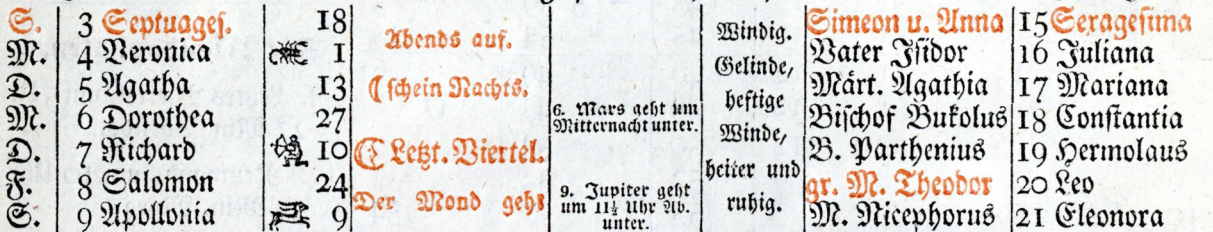 S. 3 Septuages. 18 Abends auf. Windig. Simeon u. Anna 15 Sexagesima
M. 4 Veronica 1 Gelinde, Vater Isidor 16 Juliana
D. 5 Agatha 13 ☾ schein Nachts. heftige Märt. Agathia 17 Mariana
M. 6 Dorothea 27 6. Mars geht um Mitternacht unter. Winde, Bischof Bukolus 18 Constantia
D. 7 Richard 10 ☾ Letzt. Viertel. heiter und B. Parthenius 19 Hermolaus
F. 8 Salomon 24 Der Mond geht 9. Jupiter geht um 11½ Uhr Ab. unter. ruhig. gr. M. Theodor 20 Leo
S. 9 Apollonia 9 M. Nicephorus 21 Eleonora